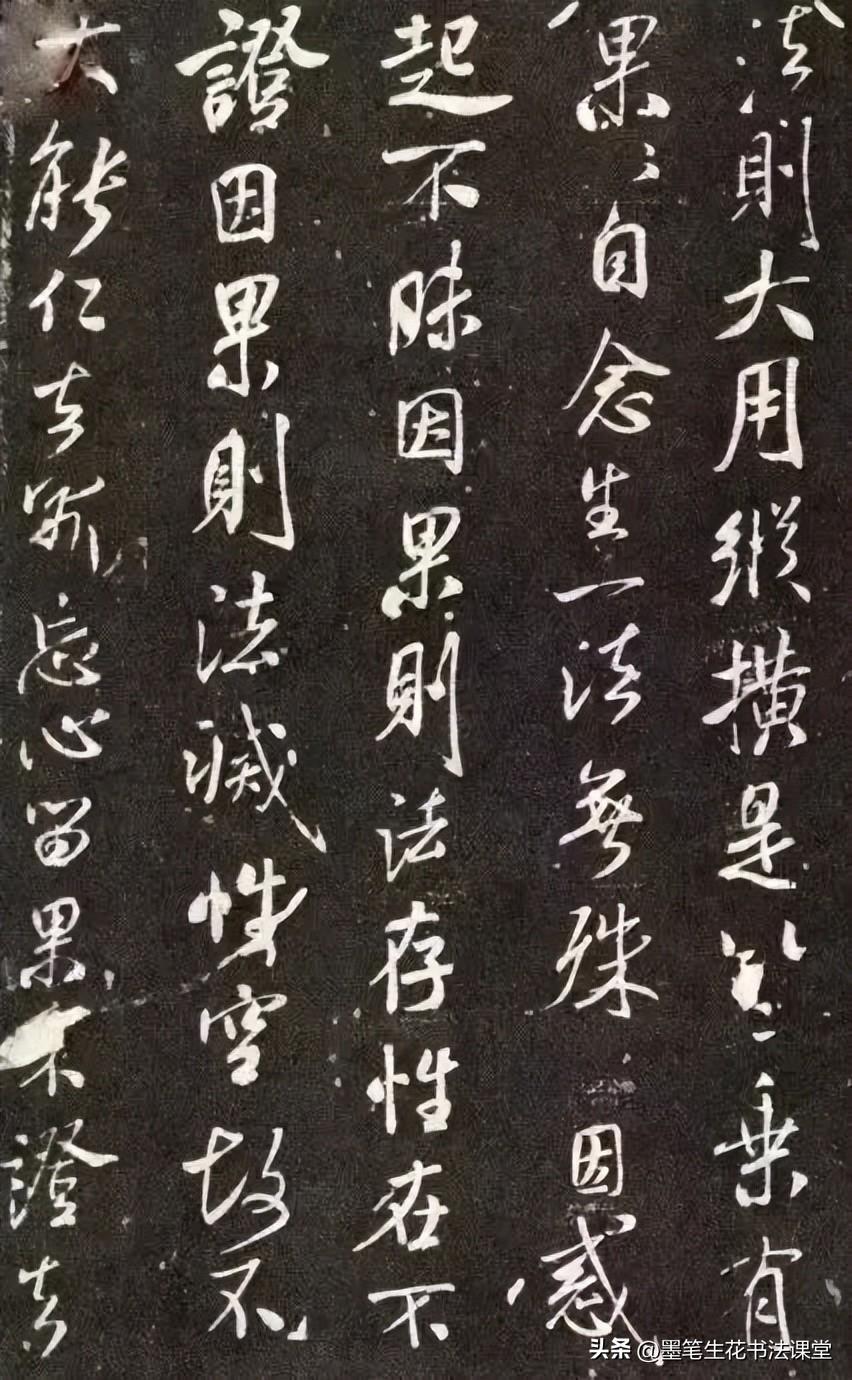 法則大用縱橫是以三乘有
果〻自念生一法無殊因惑
起不昧因果則法存性在不
證因果則法滅性空故不
大能仁去斷忘心留果不證者
头条 @墨笔生花书法课堂